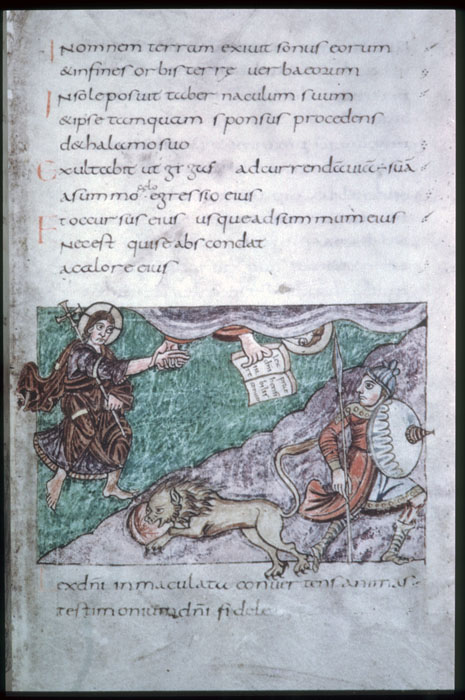 INomnem terram exivit sonus eorum
&infines orbis terre verba eorum
INsole posuit tabernaculum suum
&ipse tamquam sponsus procedens
dethalamo suo
Exultabit ut gigas adcurrendā viā suā
asummo celo egressio eius
Et occursus eius usque adsummum eius
Necest quise abscondat
acalore eius
exdn̄i inmaculata convertens animas
testimonium dn̄i fidele